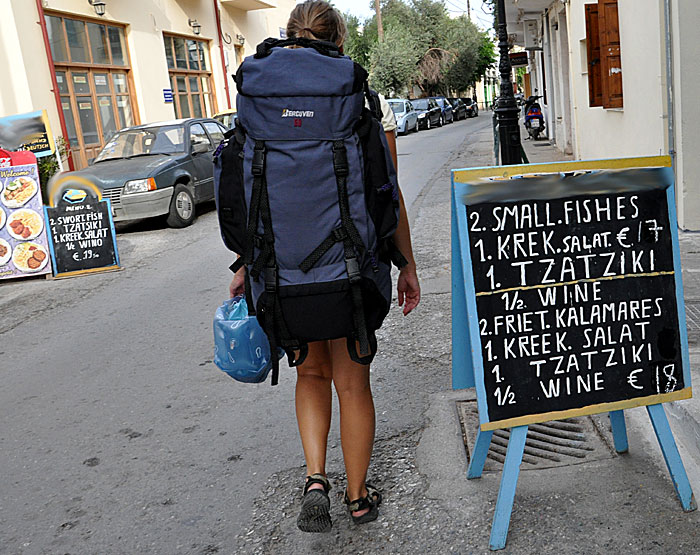 Welcome
MENU 2.
2. SWORT.FISH
1 TZATSIKI
1. KREEK.SALAT
½ WINO
€.19,50
BERGOVEN
2. SMALL.FISHES
1. KREK.SALAT. €17
1. TZATZIKI
1/2. WINE
2. FRIET. KALAMARES
1. KREEK. SALAT
1. TZATZIKI
1/2 WINE € 18